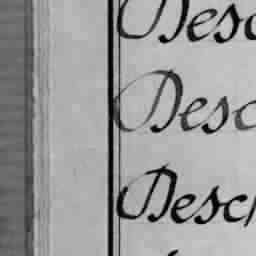 Desc
Desc
Desc